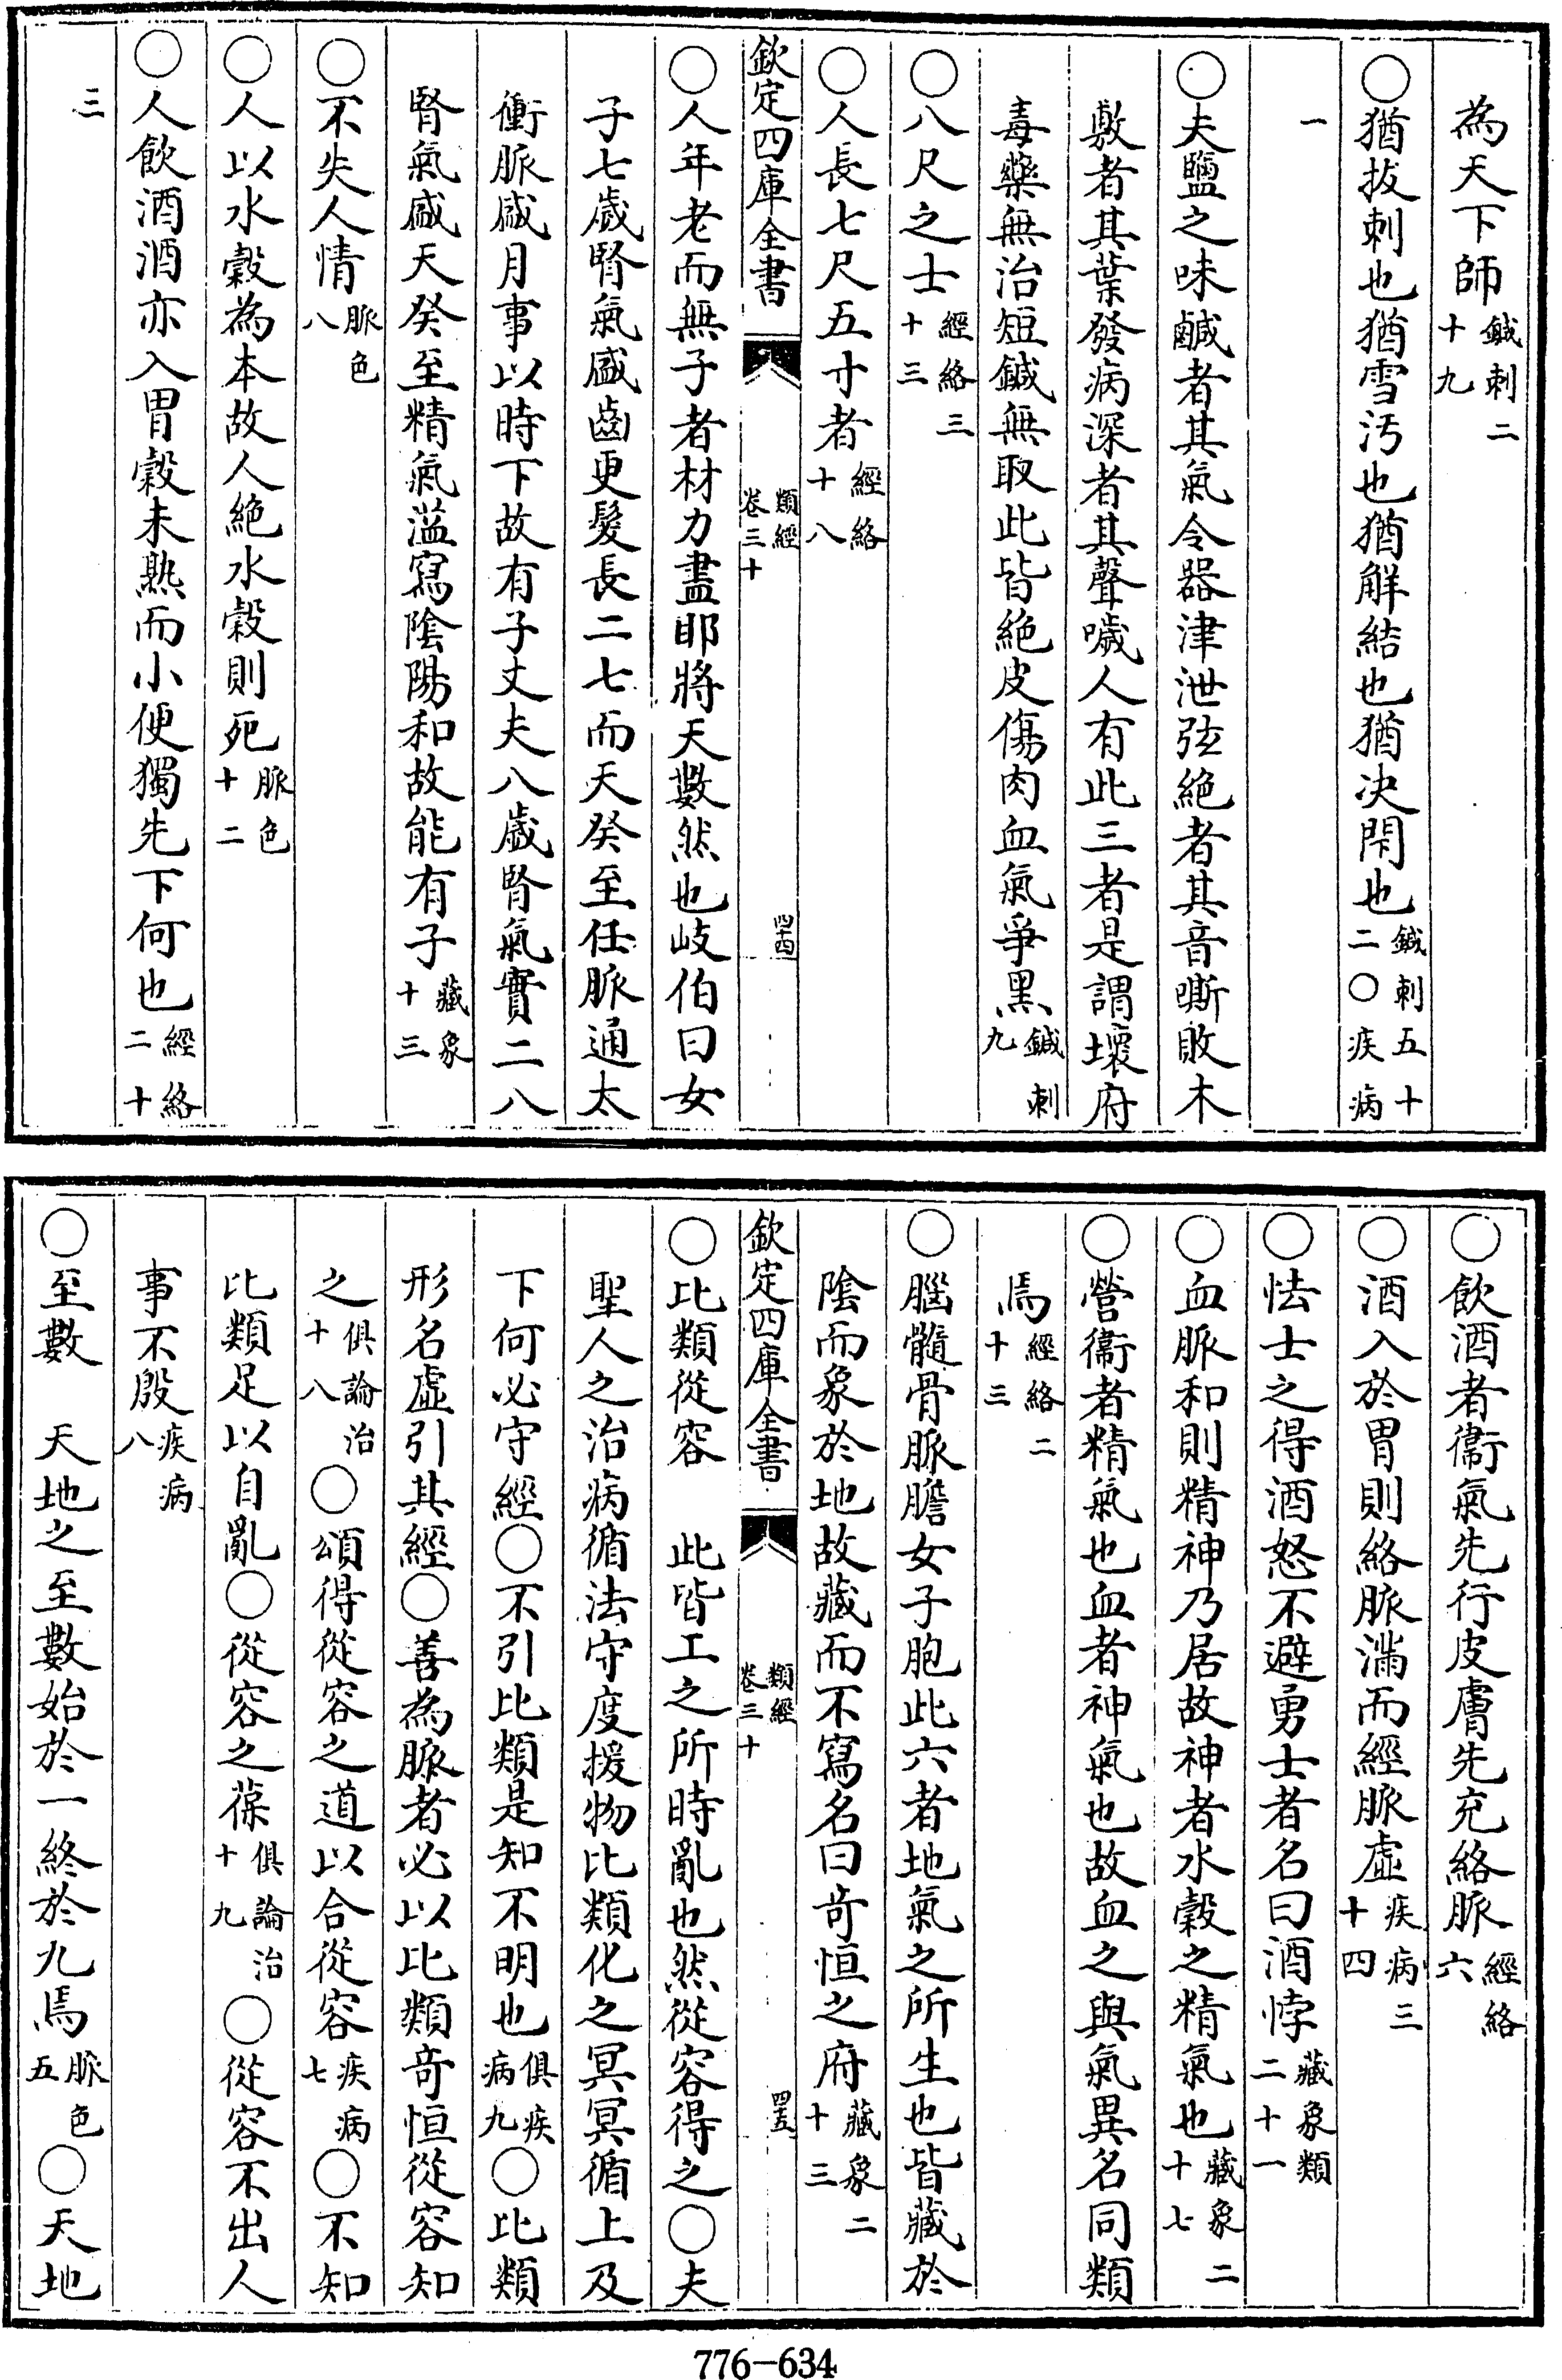 為天下師鍼刺二十九
○猶拔刺也猶雪汚也猶解結也猶决閇也鍼刺五十二○疾病
一
○夫鹽之味鹹者其氣令器津泄弦絶者其音嘶敗木
敷者其葉發病深者其聲噦人有此三者是謂壞府
毒藥無治短鍼無取此皆絶皮傷肉血氣爭黑鍼刺九
○八尺之士經絡三十三
○人長七尺五寸者經絡十八
欽定四庫全書 類經卷三十 四十四
○人年老而無子者材力盡耶將天數然也岐伯曰女
子七歲腎氣盛齒更髮長二七而天癸至任脈通太
衝脈盛月事以時下故有子丈夫八歲腎氣實二八
腎氣盛天癸至精氣溢寫陰陽和故能有子藏象十三
○不失人情脈色八
○人以水穀為本故人絶水穀則死脈色十二
○人飲酒酒亦入胃穀未熟而小便獨先下何也經絡二十
三
○飲酒者衞氣先行皮膚先充絡脈經絡六
○酒入於胃則絡脈滿而經脈虛疾病三十四
○怯士之得酒怒不避勇士者名曰酒悖藏象類二十一
○血脈和則精神乃居故神者水穀之精氣也藏象二十七
○營衞者精氣也血者神氣也故血之與氣異名同類
焉經絡二十三
○腦髓骨脈膽女子胞此六者地氣之所生也皆藏於
陰而象於地故藏而不寫名曰奇恒之府藏象二十三
欽定四庫全書 類經卷三十 四十五
○比類從容 此皆工之所時亂也然從容得之○夫
聖人之治病循法守度援物比類化之冥冥循上及
下何必守經○不引比類是知不明也俱疾病九○比類
形名虛引其經○善為脈者必以比類奇恒從容知
之俱論治十八○頌得從容之道以合從容疾病七○不知
比類足以自亂○從容之葆俱論治十九○從容不出人
事不殷疾病八
○至數 天地之至數始於一終於九焉脈色五○天地
776-634